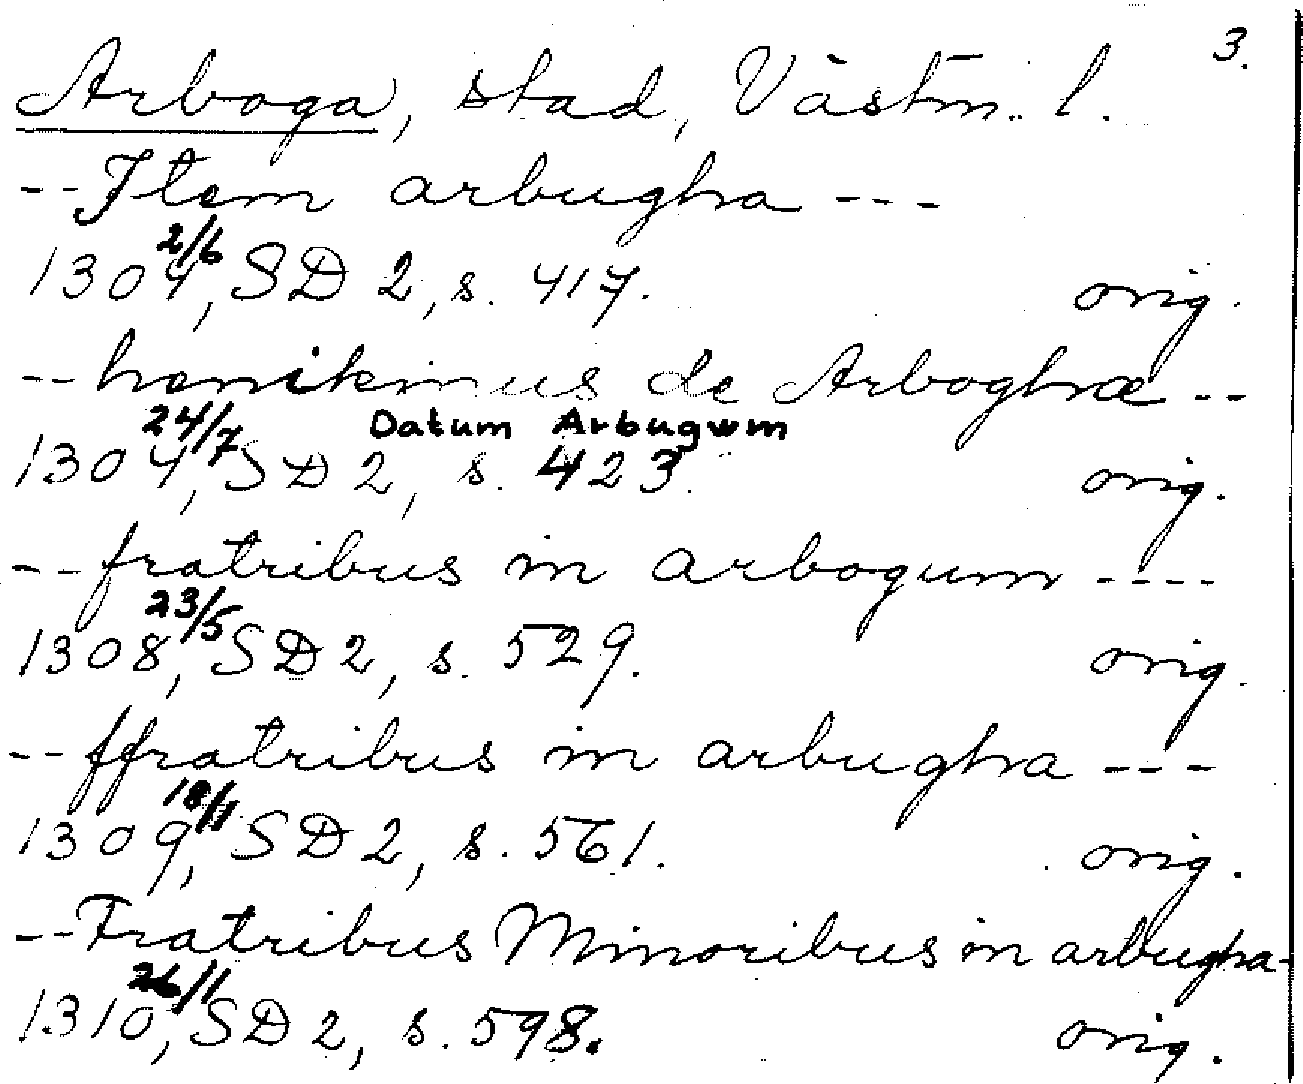 3.
Arboga, stad, Västm. l.
--Item arbugha ---
1304 2/6, SD 2, s. 417. orig.
-- henikinus de Arboghæ --
Datum Arbugum
1304 24/7, SD 2, s. 423. orig.
-- fratribus in arbogum ----
1308 23/5, SD 2, s. 529. orig.
-- ffratribus in arbugha ---
1309 18/1, SD 2, s. 561. orig.
-- Fratribus Minoribus in arbugha-
1310 26/1, SD 2, s. 598. orig.